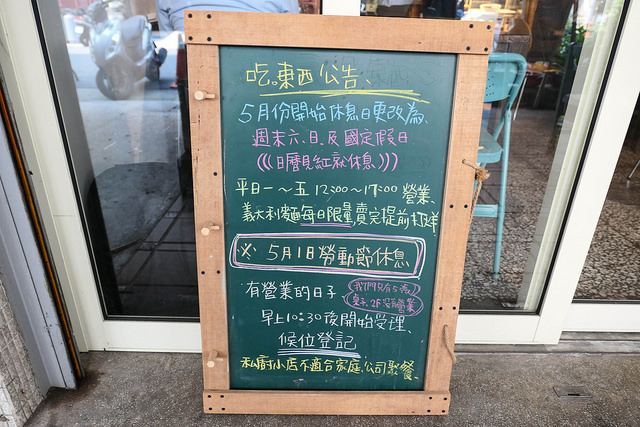 吃。東西 公告、
5月份開始休息日更改為、
週末六、日、及 國定假日
(((日曆見紅就休息)))
平日一～五 12:00～17:00 營業、
義大利麵每日限量,賣完提前打烊
※ 5月1日勞動節休息
有營業的日子
我們只有5張
桌子.2F沒有營業
早上10:30後開始受理、
候位登記
私廚小店不適合家庭.公司聚餐、